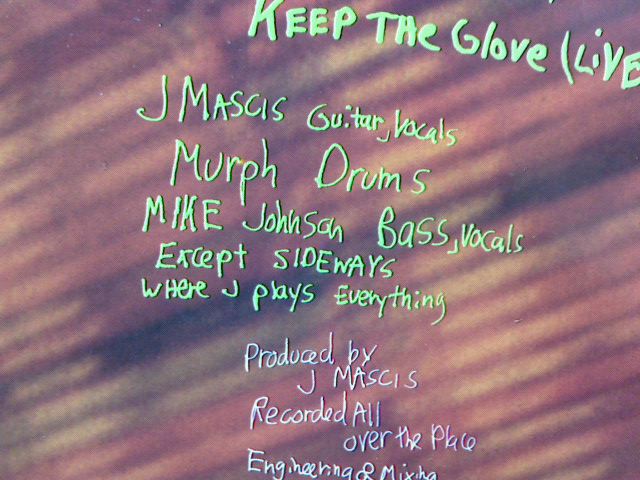 KEEP THE GLOVE (LIVE
J MASCIS Guitar, Vocals
Murph Drums
MIKE Johnson BASS, Vocals
Except SIDEWAYS
WHERE J plays Everything
Produced by
J MASCIS
Recorded All
over the Place
Engineering & Mixing